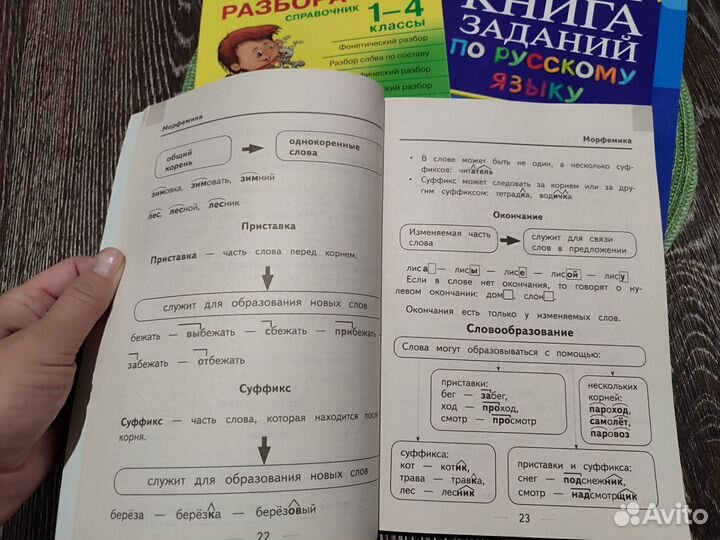 РАЗБОРА
СПРАВОЧНИК 1–4
КЛАССЫ
Фонетический разбор
Разбор слова по составу
разбор
разбор
КНИГА
ЗАДАНИЙ
ПО РУССКОМУ
ЯЗЫКУ
Морфемика
общий
корень
однокоренные
слова
зимовка, зимовать, зимний
лес, лесной, лесник
Приставка
Приставка — часть слова перед корнем.
служит для образования новых слов
бежать — выбежать — сбежать — прибежать —
забежать — отбежать
Суффикс
Суффикс — часть слова, которая находится после
корня.
служит для образования новых слов
берёза — берёзка — берёзовый
22
Морфемика
• В слове может быть не один, а несколько суф-
фиксов: читатель
• Суффикс может следовать за корнем или за дру-
гим суффиксом: тетрадка, водичка
Окончание
Изменяемая часть
слова
служит для связи
слов в предложении
лиса — лисы — лисе — лисой — лису
Если в слове нет окончания, то говорят о ну-
левом окончании: дом, слон.
Окончания есть только у изменяемых слов.
Словообразование
Слова могут образовываться с помощью:
приставки:
бег — забег,
ход — проход,
смотр — просмотр
нескольких
корней:
пароход,
самолёт,
паровоз
суффикса:
кот — котик,
трава — травка,
лес — лесник
приставки и суффикса:
снег — подснежник,
смотр — надсмотрщик
23
Avito